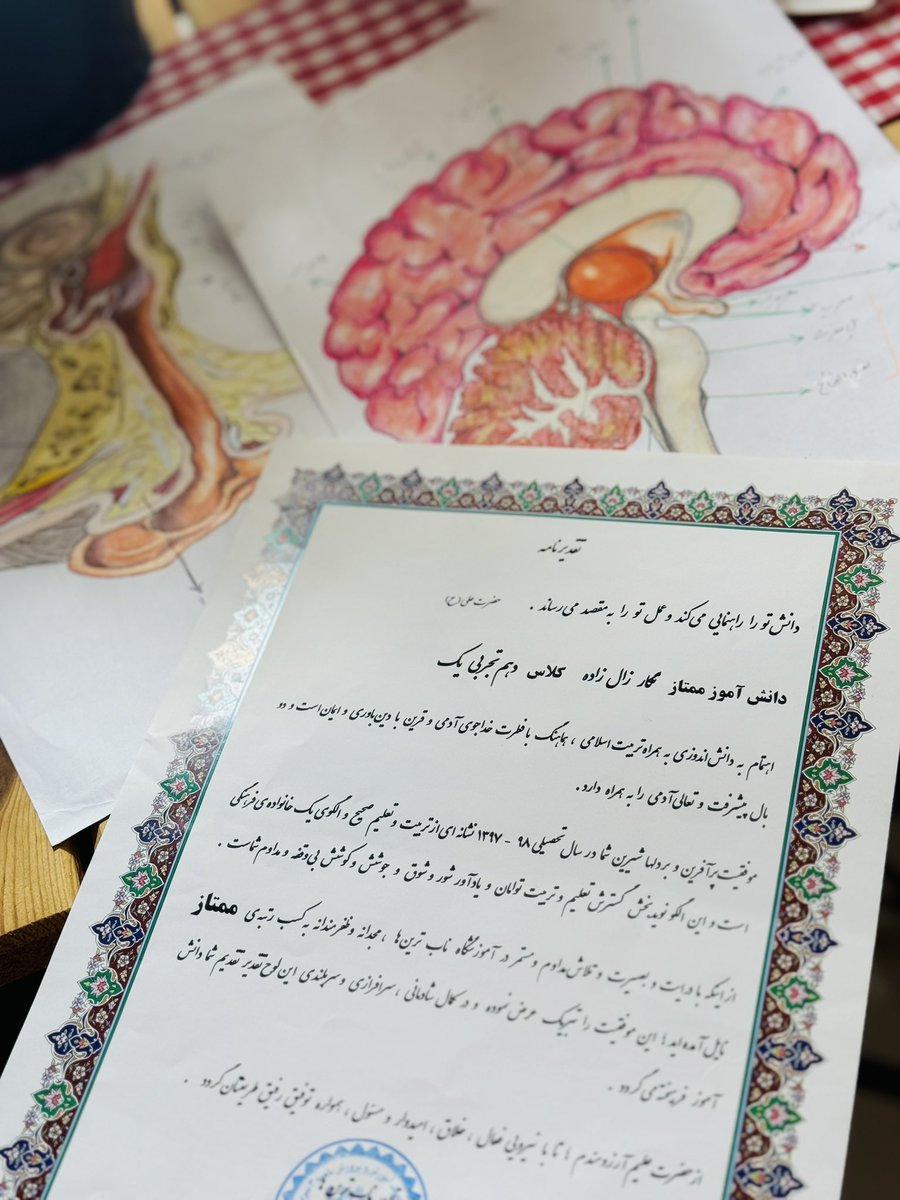 تقدیرنامه
دانش تو را راهنمایی می‌کند و عمل تو را به مقصد می‌رساند . حضرت علی (ع)
دانش آموز ممتاز نگار زال زاده کلاس دهم تجربی یک
اهتمام به دانش‌اندوزی به همراه تربیت اسلامی ، هماهنگ با فطرت خداجوی آدمی و قرین با دین‌باوری و ایمان است و دو
بال پیشرفت و تعالی آدمی را به همراه دارد .
موفقیت پرآفرین و بر دلها شیرین شما در سال تحصیلی ۹۸ - ۱۳۹۷ نشانه ای از تربیت و تعلیم صحیح و الگوی یک خانواده‌ی فرهنگی
است و این الگو نویدبخش گسترش تعلیم و تربیت توامان و یادآور شور و شوق و جوشش و کوشش بی‌وقفه و مداوم شماست .
از اینکه با درایت و بصیرت و تلاش مداوم و مستمر در آموزشگاه ناب ترین‌ها ، مجدانه و ظفرمندانه به کسب رتبه‌ی ممتاز
نایل آمده‌اید ؛ این موفقیت را تبریک عرض نموده و در کمال شادمانی ، سرافرازی و سربلندی این لوح تقدیر تقدیم شما دانش
آموز فرهیخته می گردد .
از حضرت علیم آرزومندم ؛ تا با نیرویی فعال ، خلاق ، امیدوار و مسئول ، همواره توفیق رفیق طریقتان گردد .
ناب ترین ها